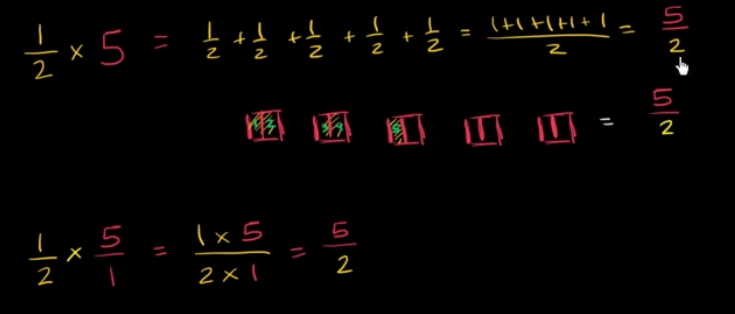 1/2 × 5 = 1/2 + 1/2 + 1/2 + 1/2 + 1/2 = (1+1+1+1+1)/2 = 5/2
= 5/2
1/2 × 5/1 = (1 × 5)/(2 × 1) = 5/2